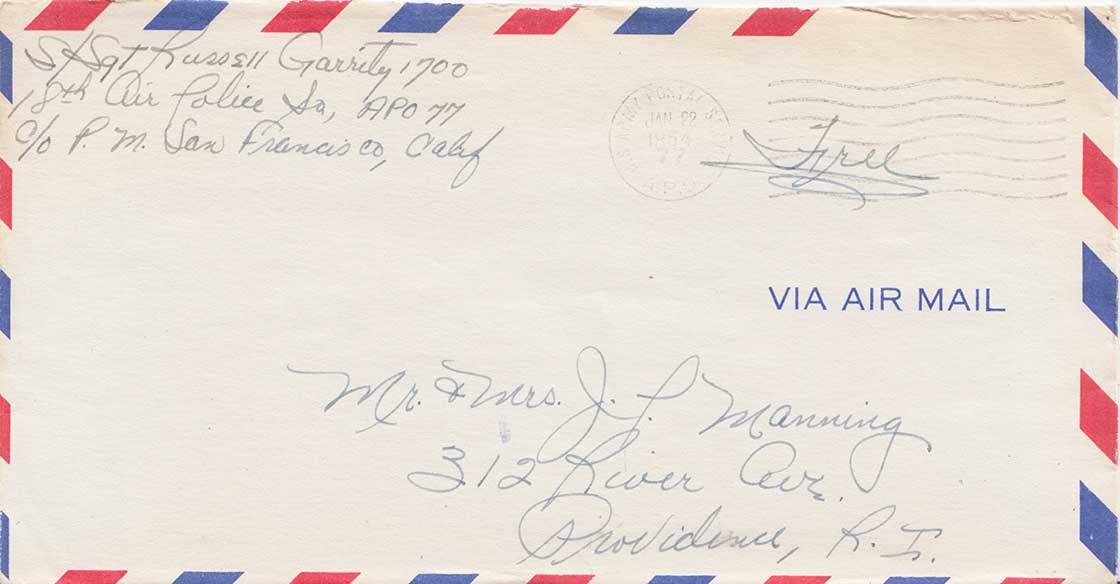 S/Sgt Russell Garrity 1700
18th Air Police Sq, APO 77
c/o P. M. San Francisco, Calif
JAN 22
1953
77
A.P.O.
Free
VIA AIR MAIL
Mr. & Mrs. J. L. Manning
312 River Ave.
Providence, R. I.